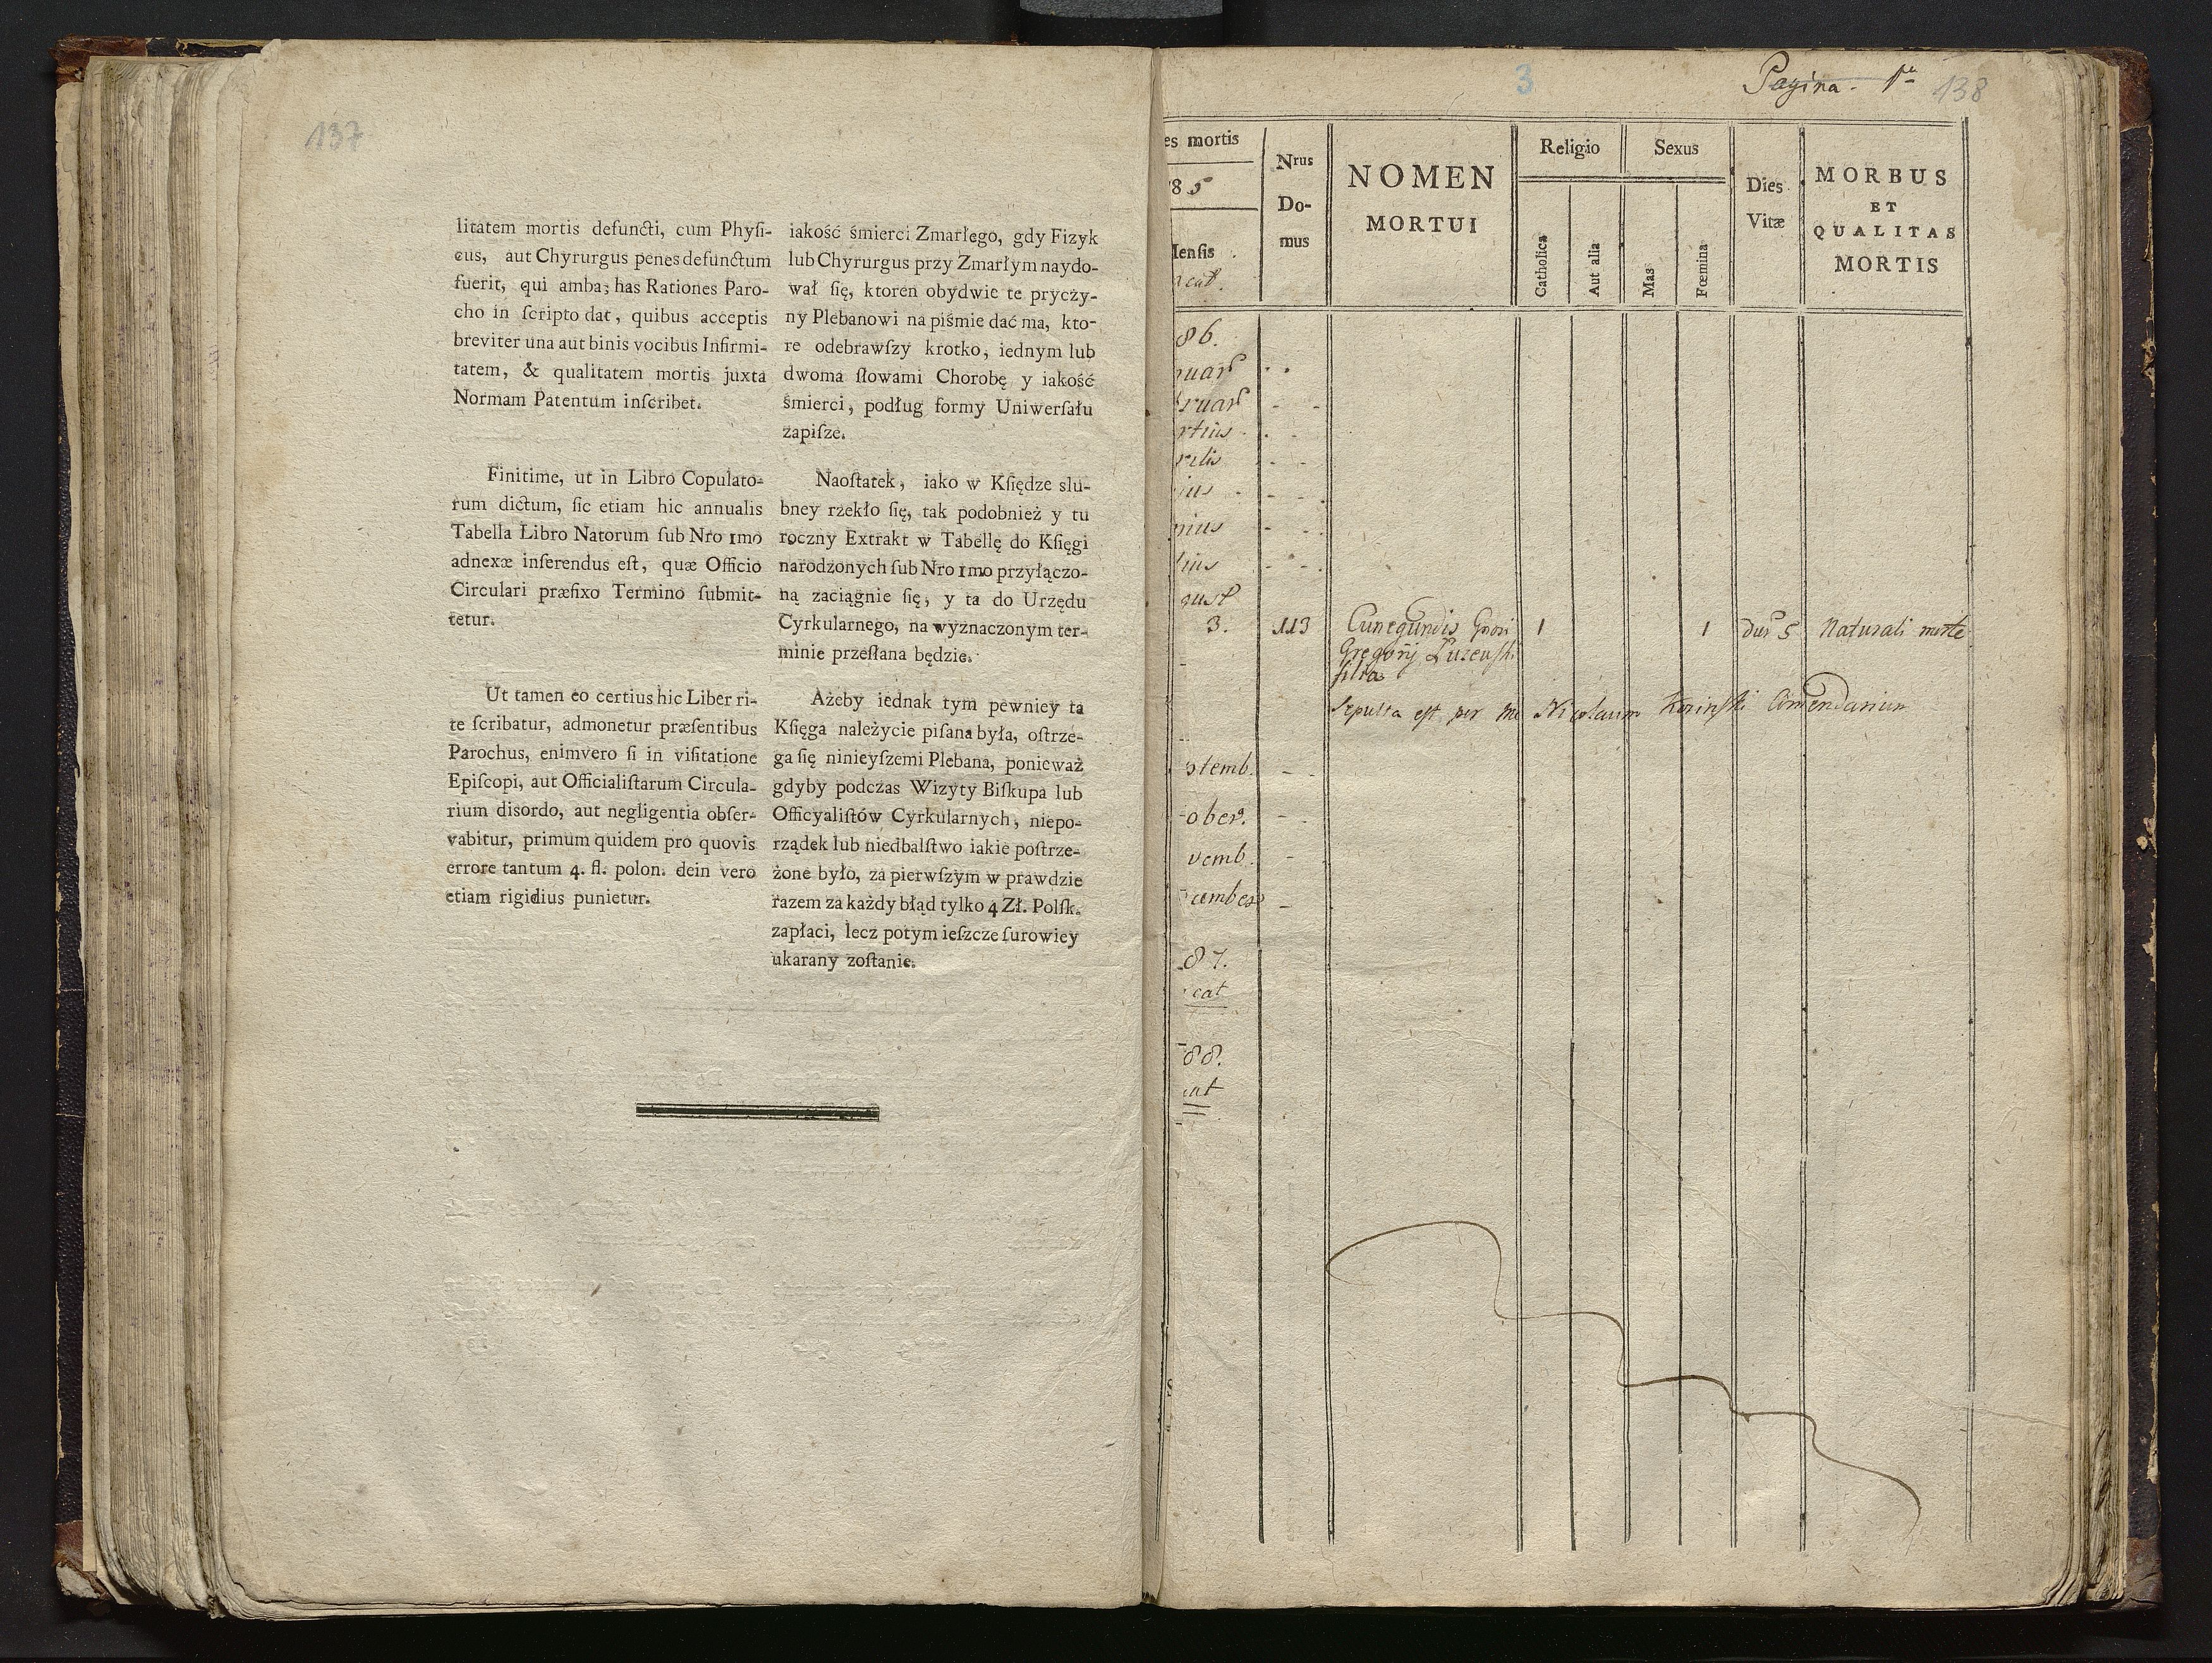 137
litatem mortis defuncti, cum Phyſi-
cus, aut Chyrurgus penes defunctum
fuerit, qui ambas has Rationes Paro-
cho in ſcripto dat, quibus acceptis
breviter una aut binis vocibus Infirmi-
tatem, & qualitatem mortis juxta
Normam Patentum inſcribet.
Finitime, ut in Libro Copulato-
rum dictum, ſic etiam hic annualis
Tabella Libro Natorum ſub Nro 1mo
adnexæ inferendus eſt, quæ Officio
Circulari præfixo Termino ſubmit-
tetur.
Ut tamen eo certius hic Liber ri-
te ſcribatur, admonetur præſentibus
Parochus, enimvero ſi in viſitatione
Epiſcopi, aut Officialiſtarum Circula-
rium disordo, aut negligentia obſer-
vabitur, primum quidem pro quovis
errore tantum 4. fl. polon. dein vero
etiam rigidius punietur.
iakość śmierci Zmarłego, gdy Fizyk
lub Chyrurgus przy Zmarłym naydo-
wał ſię, ktoren obydwie te pryczy-
ny Plebanowi na piśmie dać ma, kto-
re odebrawſzy krotko, iednym lub
dwoma ſłowami Chorobę y iakość
śmierci, podług formy Uniwerſału
zapiſze.
Naoſtatek, iako w Kſiędze slu-
bney rzekło ſię, tak podobnież y tu
roczny Extrakt w Tabellę do Kſięgi
narodzonych ſub Nro 1mo przyłączo-
ną zaciągnie ſię, y ta do Urzędu
Cyrkularnego, na wyznaczonym ter-
minie przeſłana będzie.
Ażeby iednak tym pewniey ta
Kſięga należycie piſana była, oſtrze-
ga ſię ninieyſzemi Plebana, ponieważ
gdyby podczas Wizyty Biſkupa lub
Officyaliſtów Cyrkularnych, niepo-
rządek lub niedbalſtwo iakie poſtrze-
żone było, za pierwſzym w prawdzie
razem za każdy błąd tylko 4 Zł. Polſk.
zapłaci, lecz potym ieſzcze ſurowiey
ukarany zoſtanie.
3
Pagina. 1ª
138
es mortis
85
Menſis
vacat.
Nrus
Do-
mus
NOMEN
MORTUI
Religio
Catholica
Aut alia
Sexus
Mas
Fœmina
Dies
Vitæ
MORBUS
ET
QUALITAS
MORTIS
86.
nuar
bruar
rtius
rilis
ius
nius
lius
gust
3. 113 Cunegundis 1 1 5 Naturali morte
Gregorij
filia
Sepulta eſt per me Nicolaum Comendarium
ptemb.
ober.
vemb.
cember
87.
cat
88.
cat